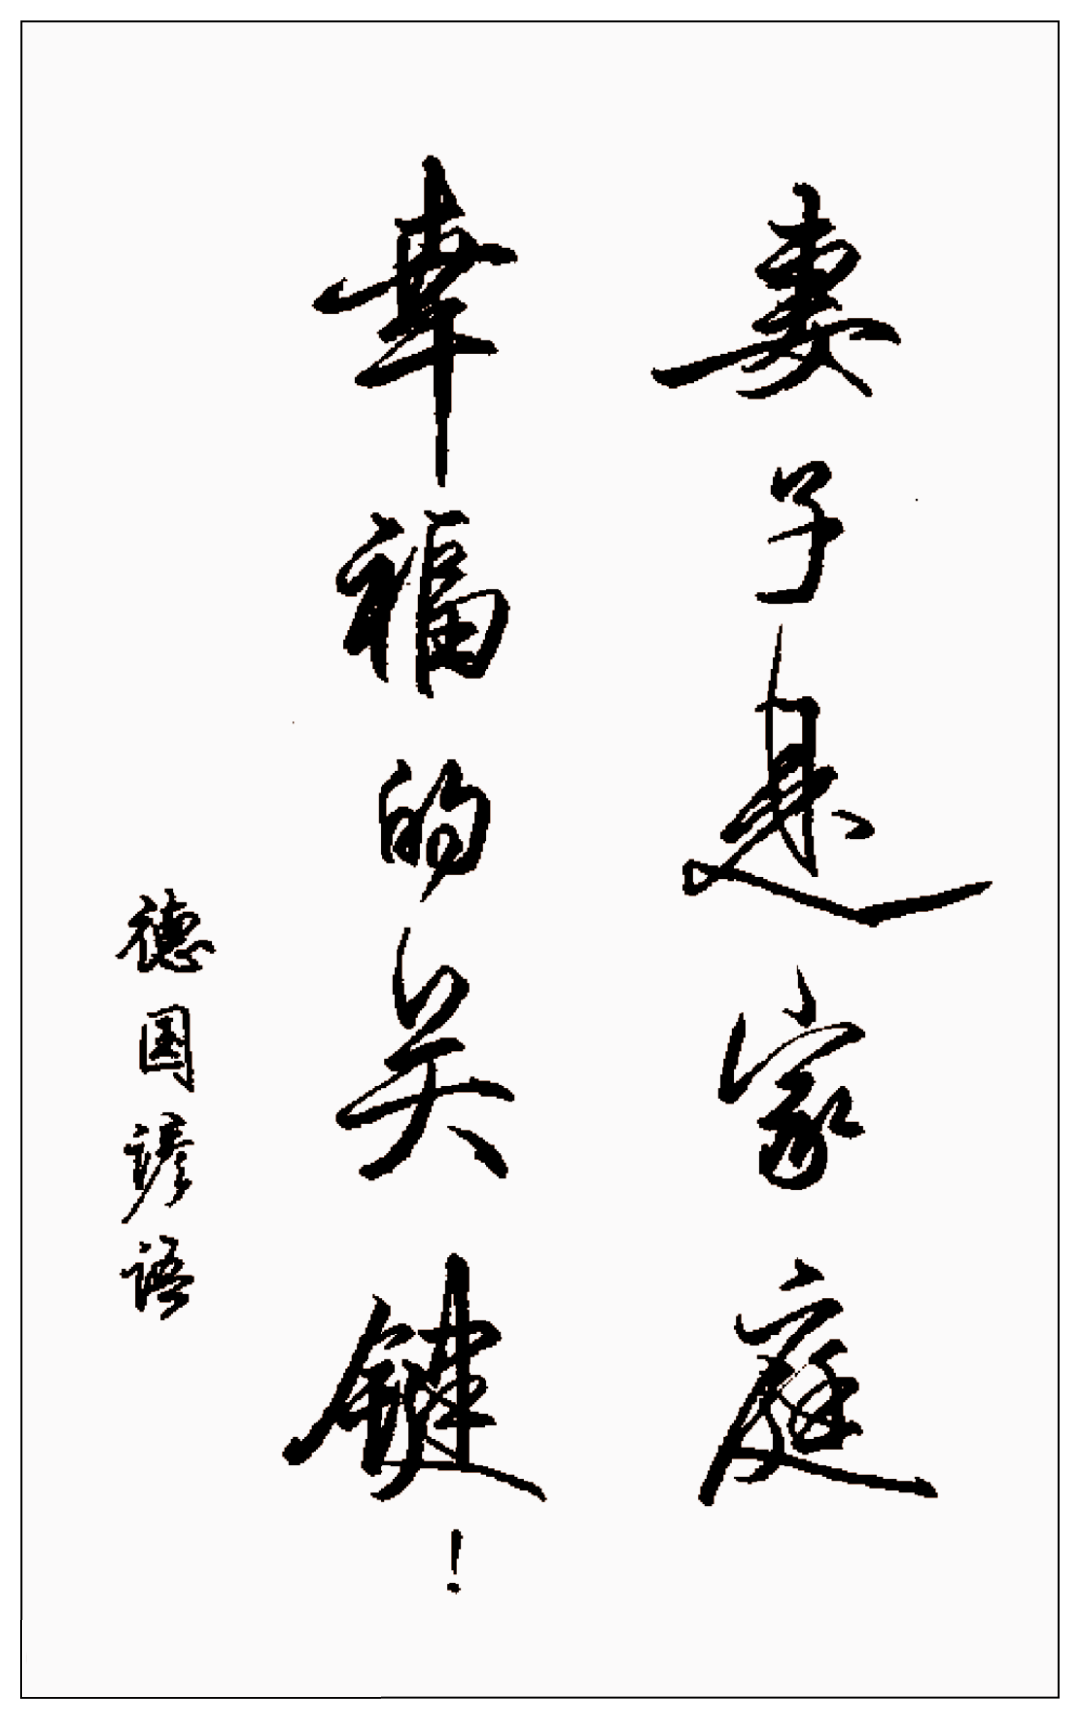 妻子是家庭
幸福的关键!
德国谚语